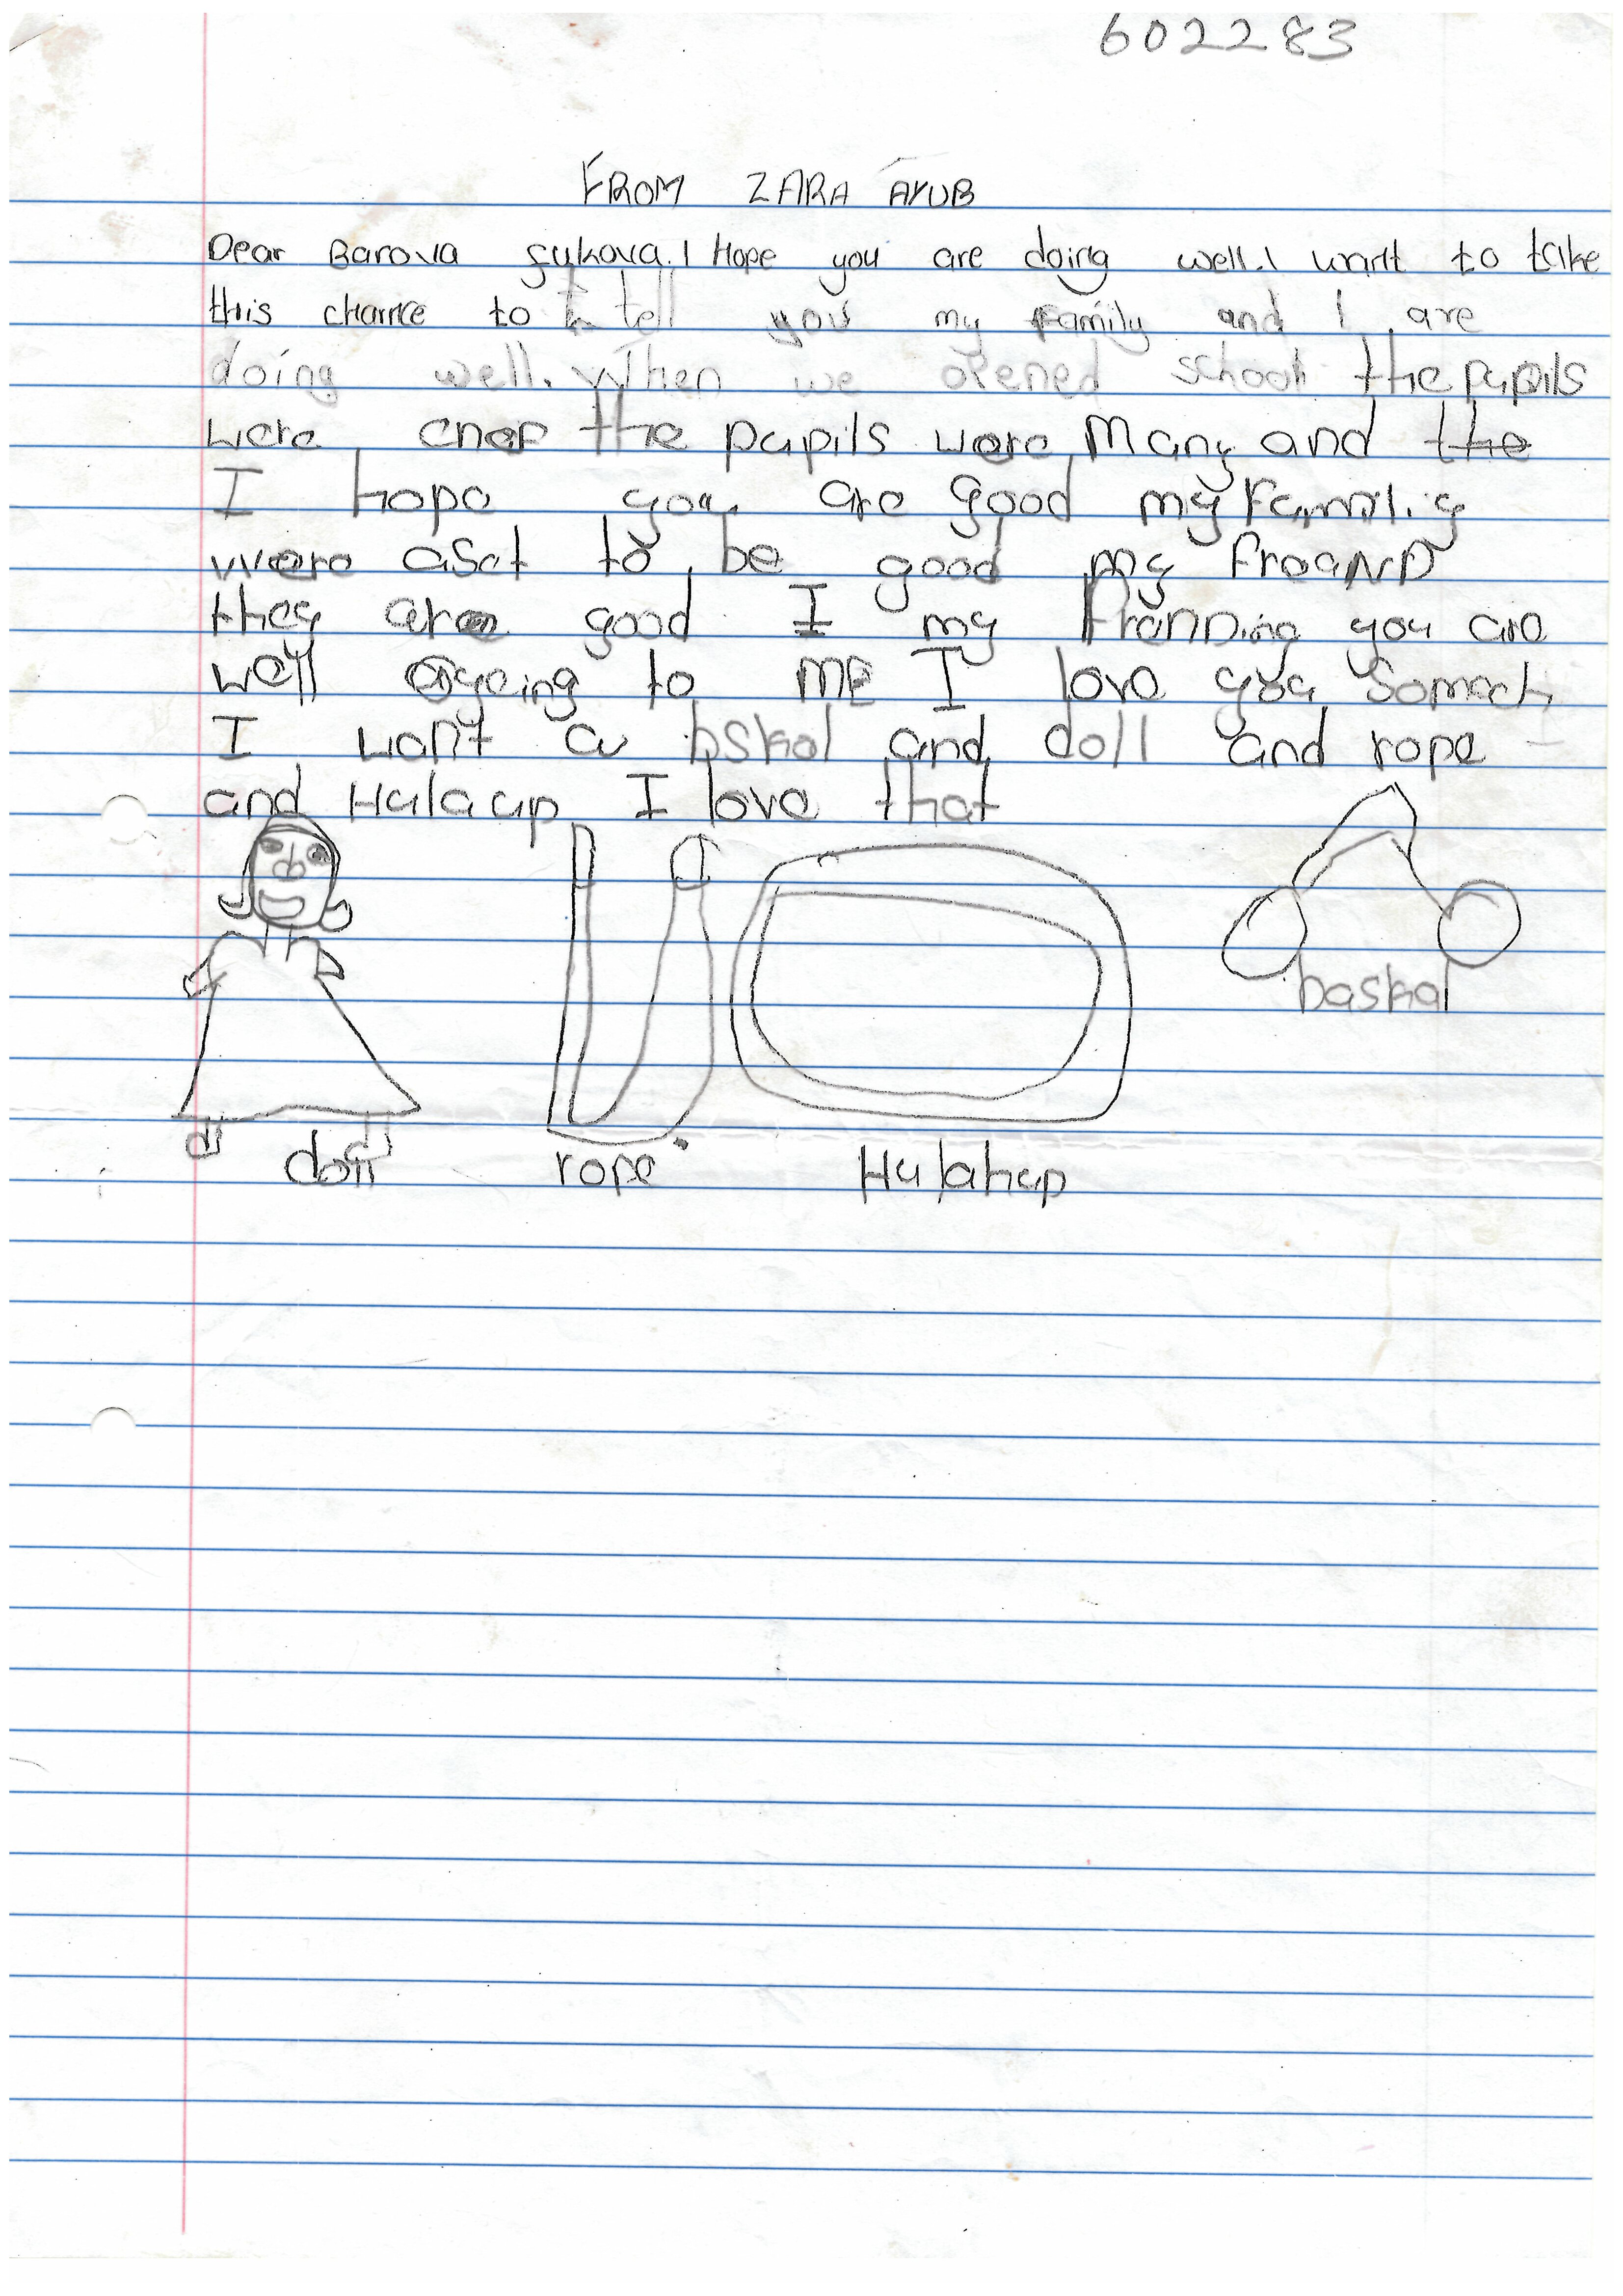 602283
FROM ZARA AYUB
Dear Barova Sukova. I Hope you are doing well. I want to take
this chance to tell you my Family and I are
doing well. When we opened school the pupils
were the pupils were Many and the
I hope you are good my Family
were to be good my
they are good I my you are
well to ME I love you Somach
I want a bskal and doll and rope
and Hulaup I love that
baskal
doll rope Hulahup